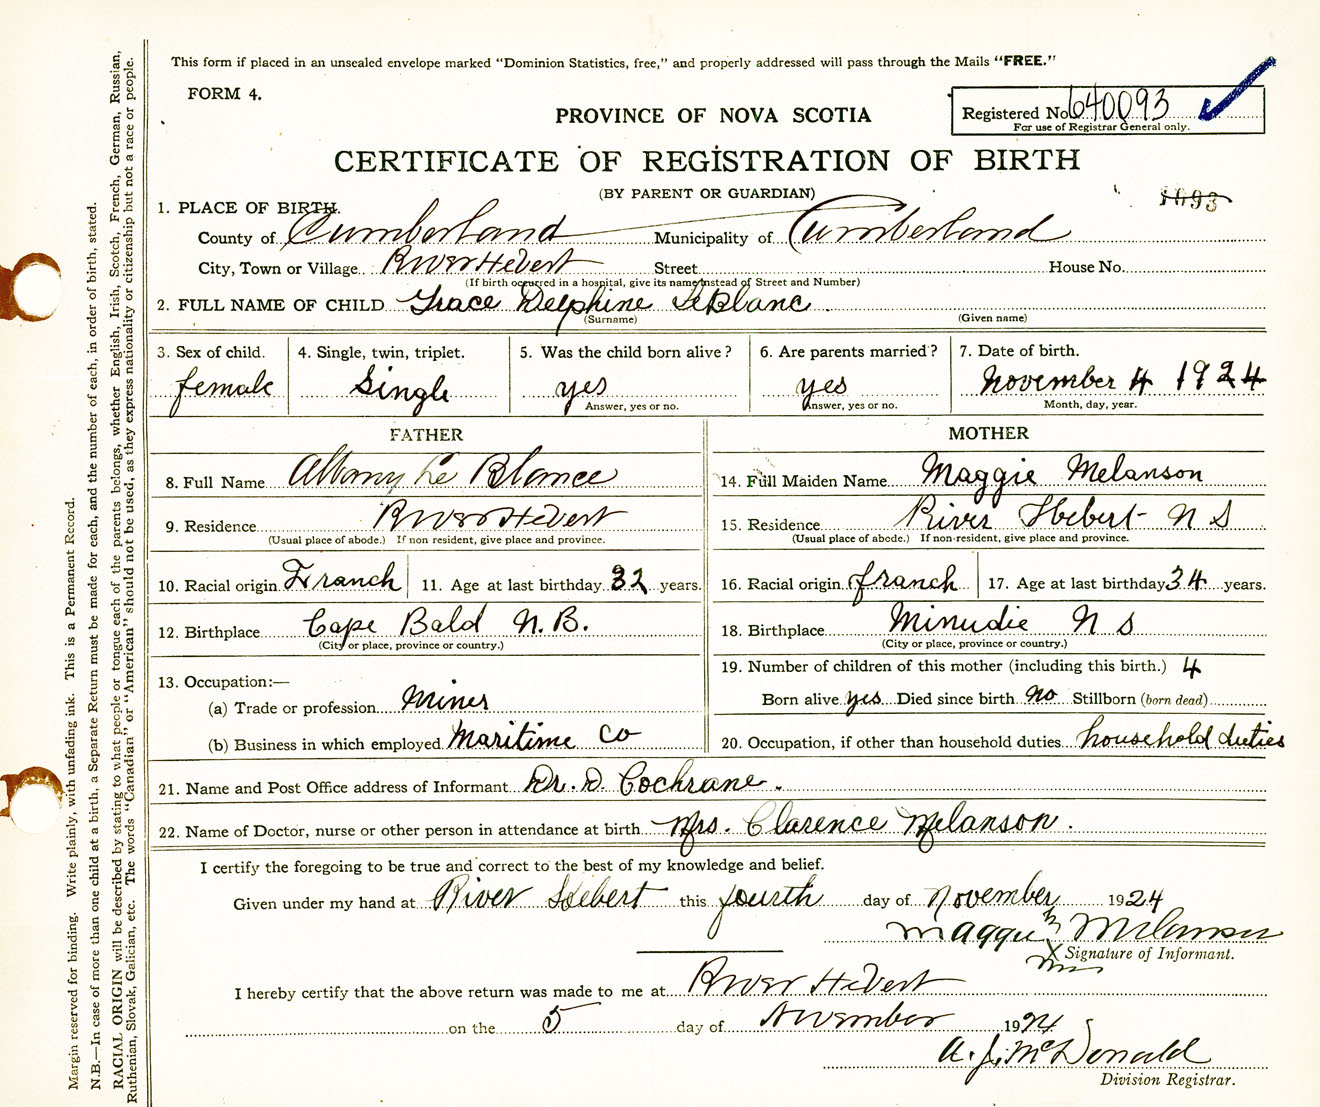 This form if placed in an unsealed envelope marked "Dominion Statistics, free," and properly addressed will pass through the Mails "FREE."
FORM 4.
PROVINCE OF NOVA SCOTIA
Registered No. 640093
For use of Registrar General only.
CERTIFICATE OF REGISTRATION OF BIRTH
(BY PARENT OR GUARDIAN)
1. PLACE OF BIRTH.
County of Cumberland Municipality of Cumberland
City, Town or Village River Hebert Street House No.
(If birth occurred in a hospital, give its name instead of Street and Number)
2. FULL NAME OF CHILD Grace Delphine LeBlanc
(Surname) (Given name)
3. Sex of child. 4. Single, twin, triplet. 5. Was the child born alive? 6. Are parents married? 7. Date of birth.
female Single yes yes November 4 1924
Answer, yes or no. Answer, yes or no. Month, day, year.
FATHER MOTHER
8. Full Name Albany Le Blance 14. Full Maiden Name Maggie Melanson
9. Residence River Hebert 15. Residence River Hebert N S
(Usual place of abode.) If non resident, give place and province. (Usual place of abode.) If non-resident, give place and province.
10. Racial origin Franch 11. Age at last birthday 32 years. 16. Racial origin franch 17. Age at last birthday 34 years.
12. Birthplace Cape Bald N.B. 18. Birthplace Minudie N S
(City or place, province or country.) (City or place, province or country.)
13. Occupation:— 19. Number of children of this mother (including this birth.) 4
(a) Trade or profession Miner Born alive yes Died since birth no Stillborn (born dead)
(b) Business in which employed Maritime Co 20. Occupation, if other than household duties household duties
21. Name and Post Office address of Informant Dr. D. Cochrane.
22. Name of Doctor, nurse or other person in attendance at birth Mrs. Clarence Melanson.
I certify the foregoing to be true and correct to the best of my knowledge and belief.
Given under my hand at River Hebert this fourth day of November 1924
Maggie Melanson
Signature of Informant.
I hereby certify that the above return was made to me at River Hebert
on the 5 day of November 1924
A. J. McDonald
Division Registrar.
Margin reserved for binding. Write plainly, with unfading ink. This is a Permanent Record.
N.B.—In case of more than one child at a birth, a Separate Return must be made for each, and the number of each, in order of birth, stated.
RACIAL ORIGIN will be described by stating to what people or tongue each of the parents belongs, whether English, Irish, Scotch, French, German, Russian,
Ruthenian, Slovak, Galician, etc. The words "Canadian" or "American" should not be used, as they express nationality or citizenship but not a race or people.